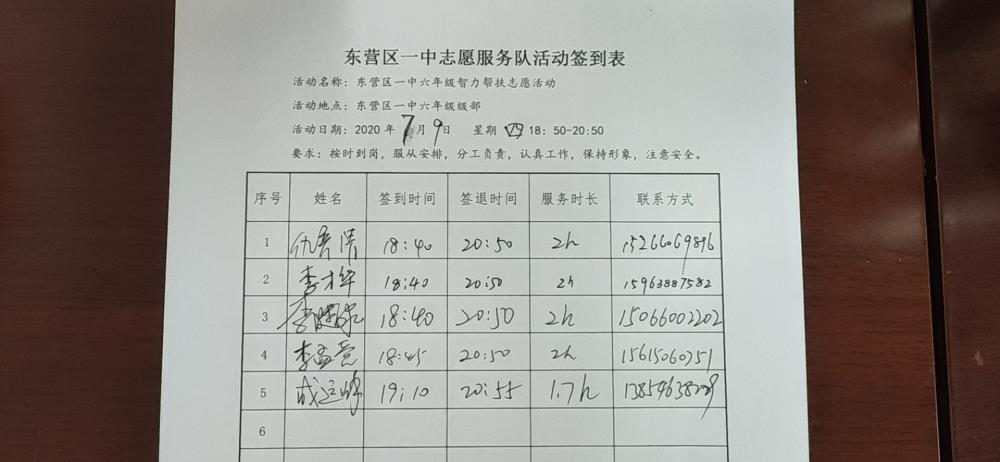 东营区一中志愿服务队活动签到表
活动名称：东营区一中六年级智力帮扶志愿活动
活动地点：东营区一中六年级级部
活动日期：2020 年 7 月 9 日 星期 四 18：50-20:50
要求：按时到岗，服从安排，分工负责，认真工作，保持形象，注意安全。
序号 姓名 签到时间 签退时间 服务时长 联系方式
1 18:40 20:50 2h
2 李才华 18:40 20:50 2h 15963887582
3 李 18:40 20:50 2h 15066002202
4 李孟 18:45 20:50 2h 15615060751
5 成 19:10 20:55 1.7h
6